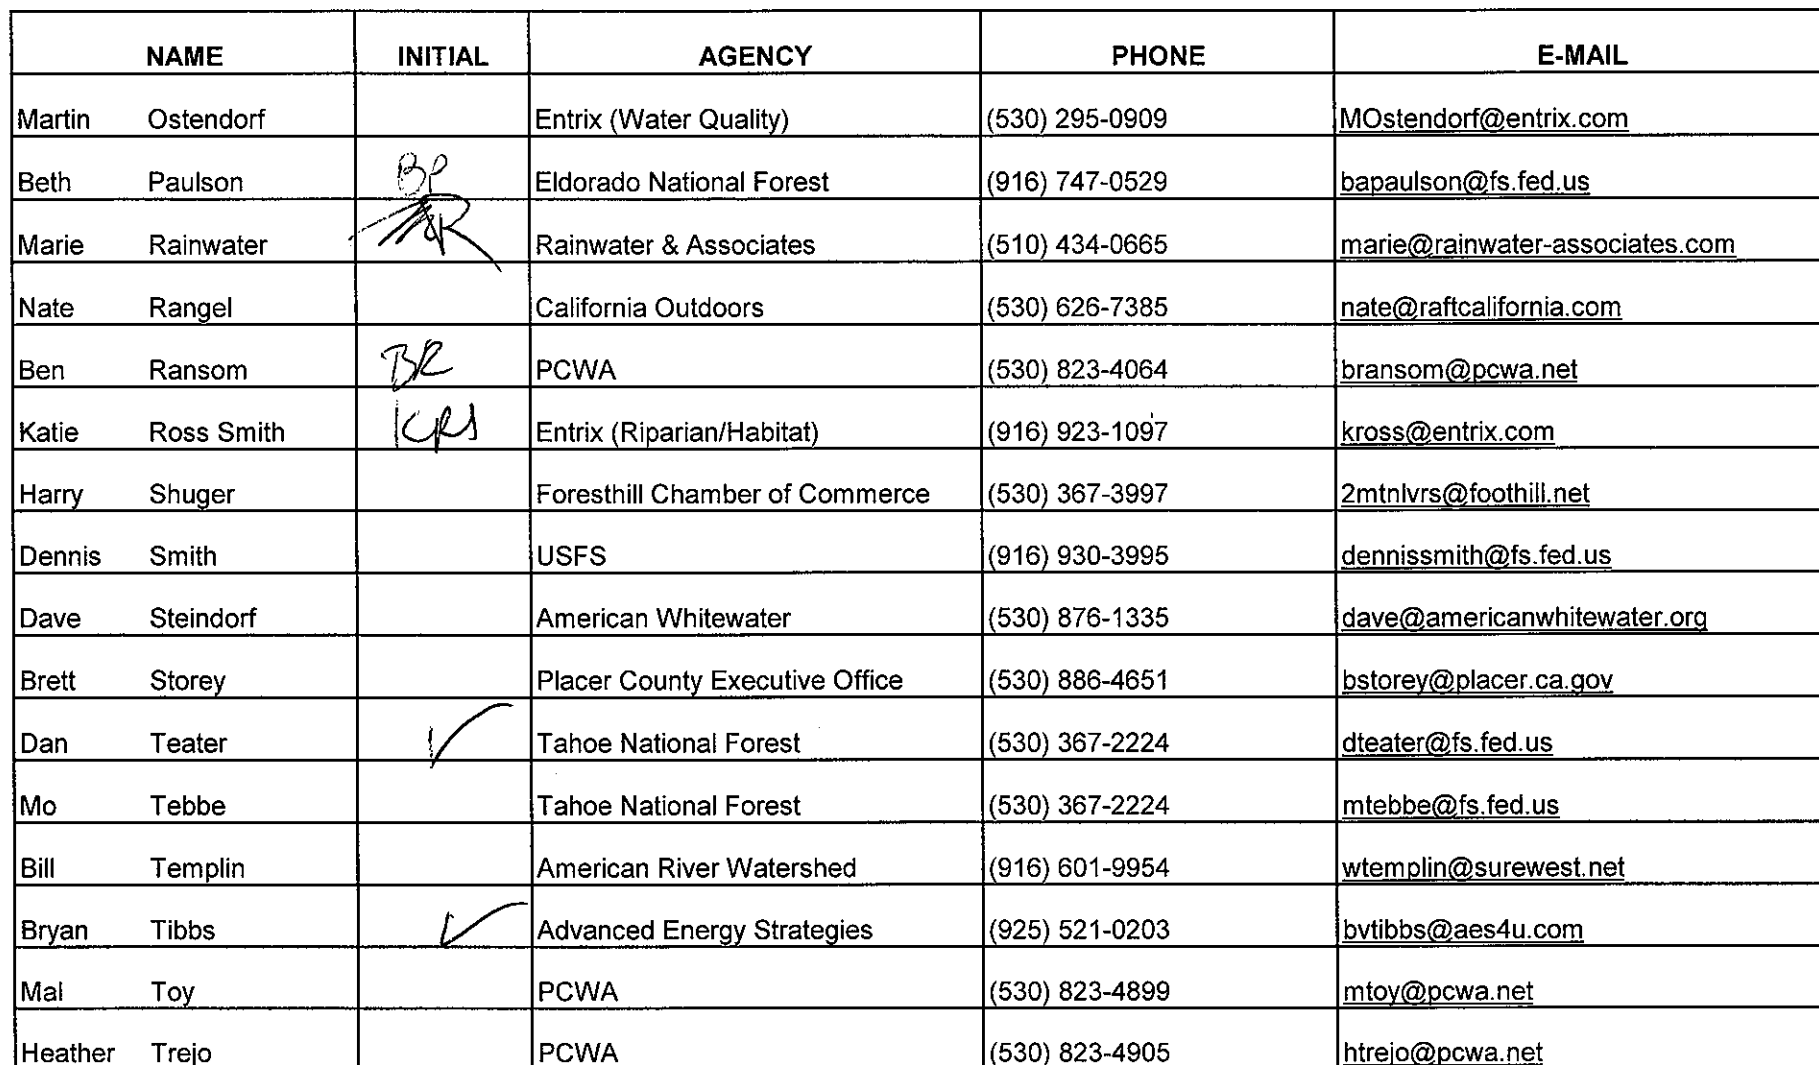 NAME INITIAL AGENCY PHONE E-MAIL
Martin Ostendorf Entrix (Water Quality) (530) 295-0909 MOstendorf@entrix.com
Beth Paulson BP Eldorado National Forest (916) 747-0529 bapaulson@fs.fed.us
Marie Rainwater Rainwater & Associates (510) 434-0665 marie@rainwater-associates.com
Nate Rangel California Outdoors (530) 626-7385 nate@raftcalifornia.com
Ben Ransom BR PCWA (530) 823-4064 bransom@pcwa.net
Katie Ross Smith KRS Entrix (Riparian/Habitat) (916) 923-1097 kross@entrix.com
Harry Shuger Foresthill Chamber of Commerce (530) 367-3997 2mtnlvrs@foothill.net
Dennis Smith USFS (916) 930-3995 dennissmith@fs.fed.us
Dave Steindorf American Whitewater (530) 876-1335 dave@americanwhitewater.org
Brett Storey Placer County Executive Office (530) 886-4651 bstorey@placer.ca.gov
Dan Teater ✓ Tahoe National Forest (530) 367-2224 dteater@fs.fed.us
Mo Tebbe Tahoe National Forest (530) 367-2224 mtebbe@fs.fed.us
Bill Templin American River Watershed (916) 601-9954 wtemplin@surewest.net
Bryan Tibbs ✓ Advanced Energy Strategies (925) 521-0203 bvtibbs@aes4u.com
Mal Toy PCWA (530) 823-4899 mtoy@pcwa.net
Heather Trejo PCWA (530) 823-4905 htrejo@pcwa.net